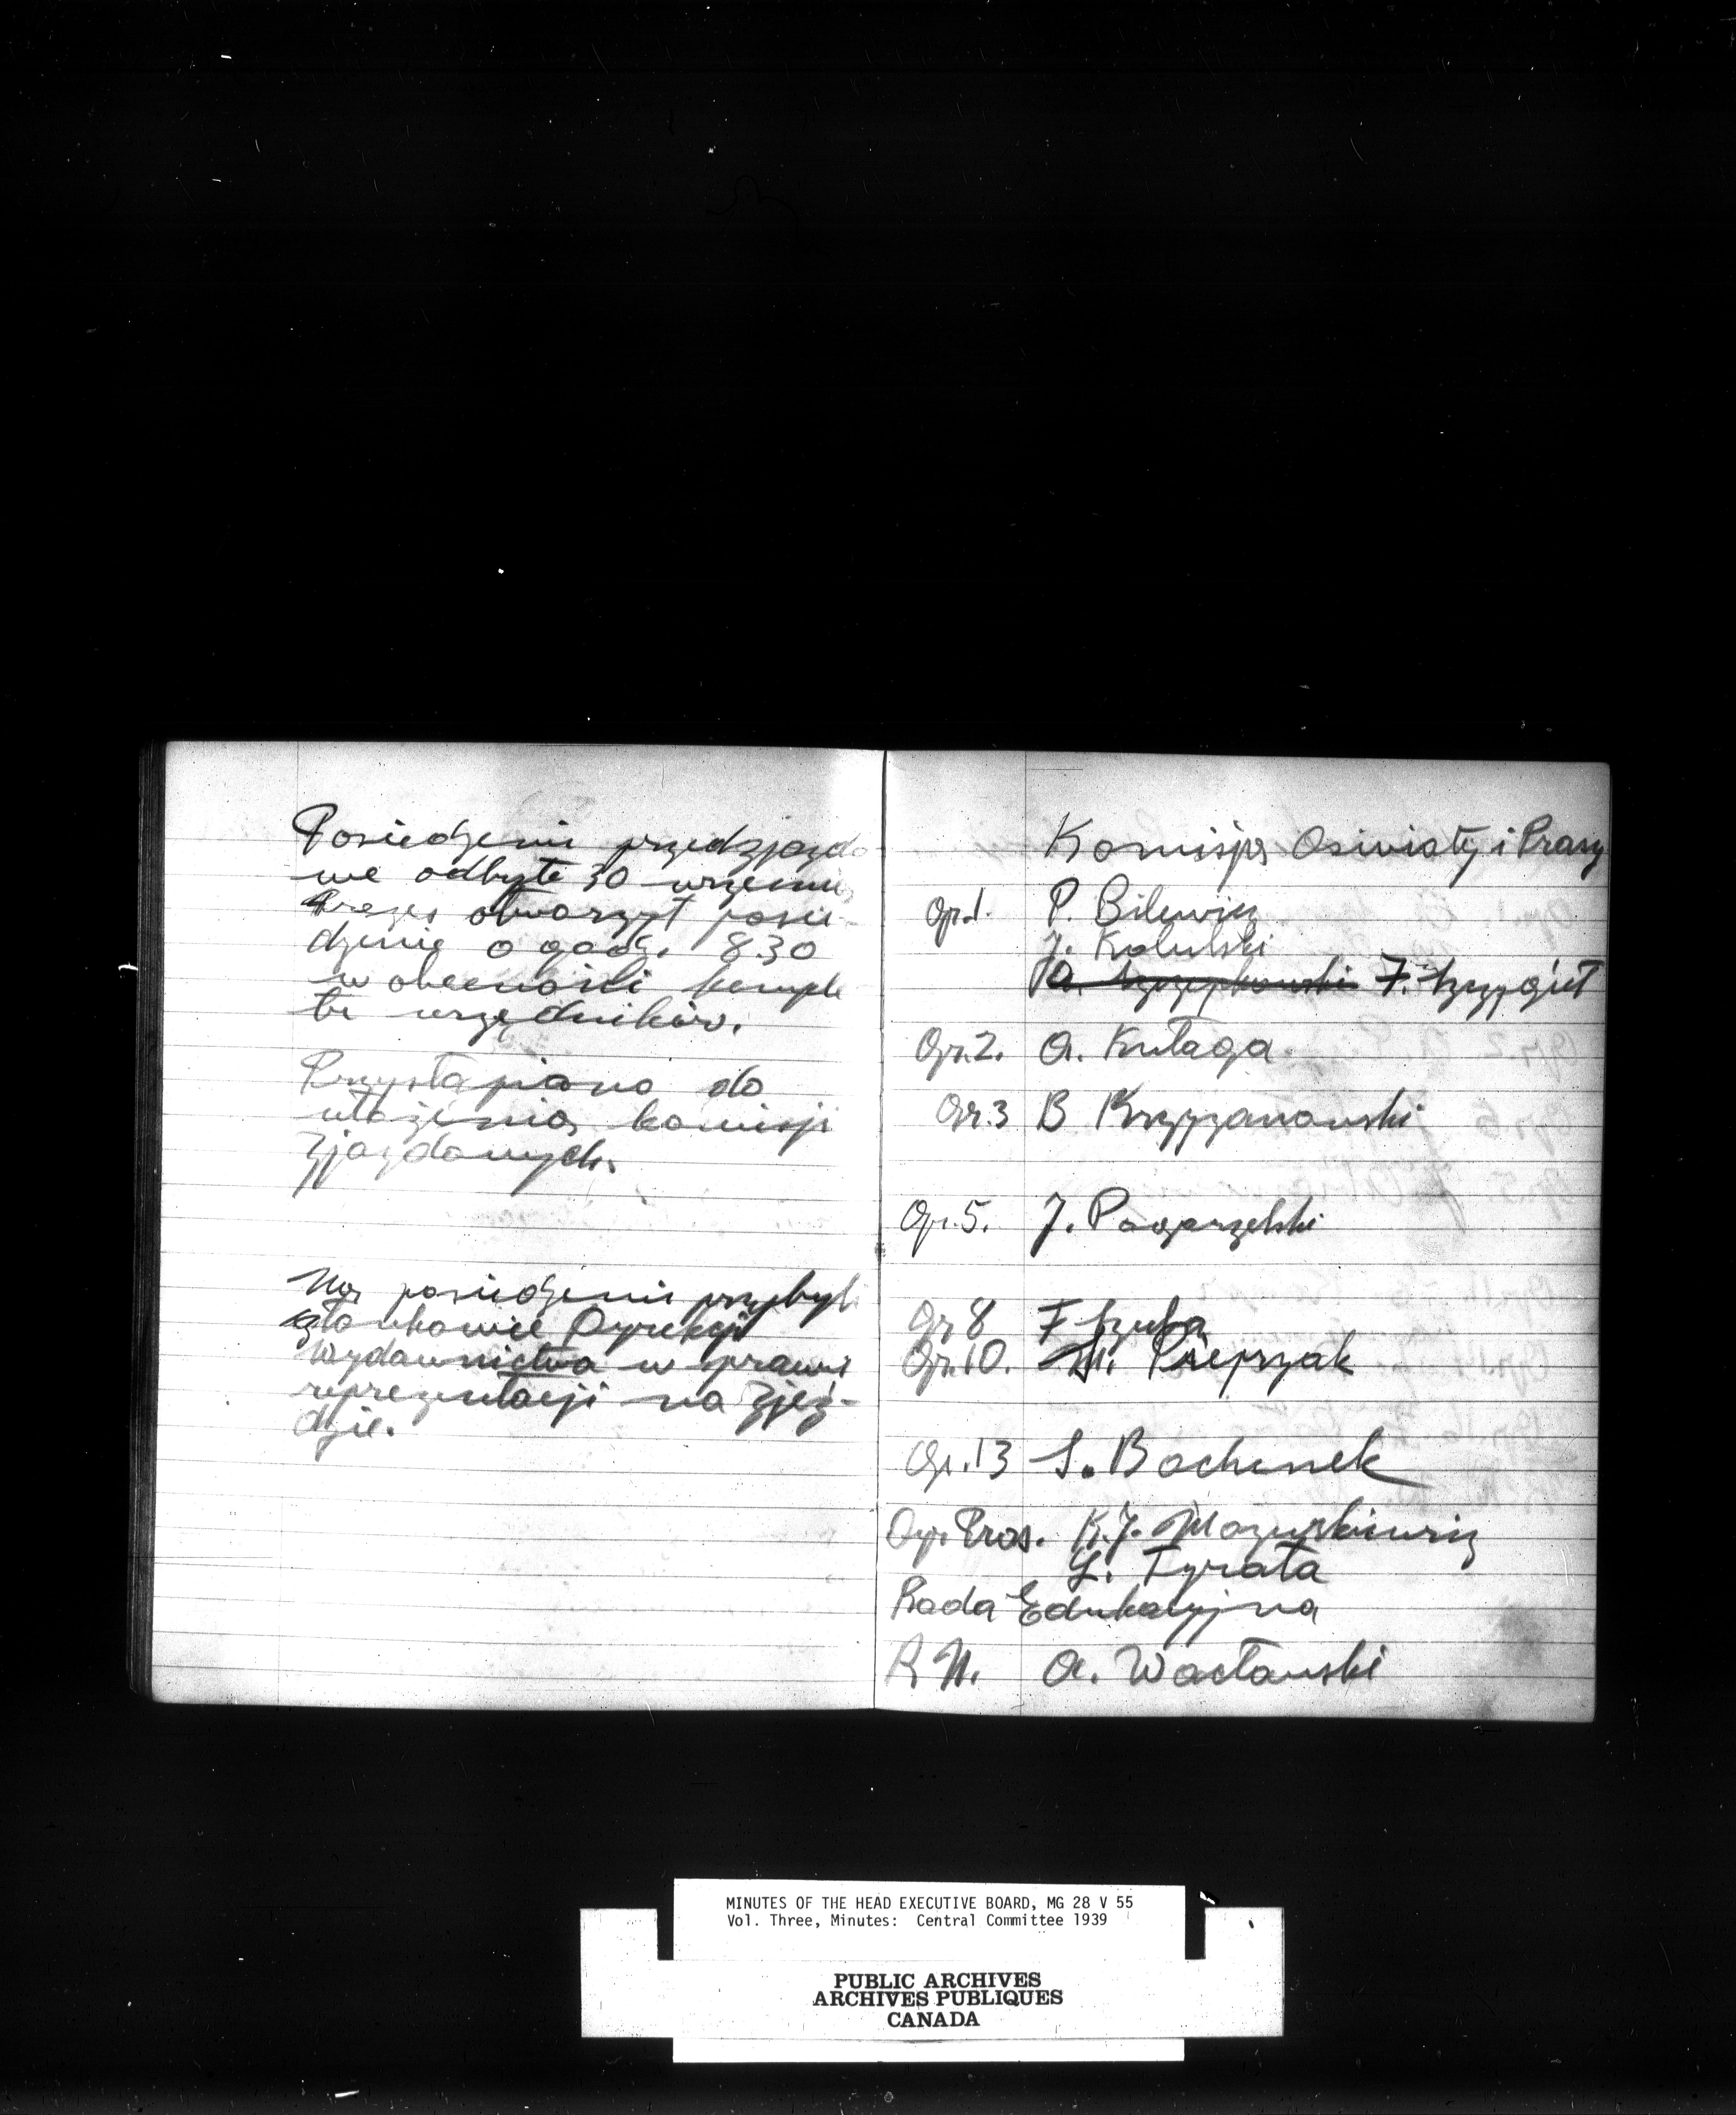 Posiedzenie przedzjazdo
we odbyte 30 września
Prezes otworzył posie-
dzenie o godz. 8.30
w obecności komple
tu urzędników.
Przystąpiono do
ułożenia komisji
Zjazdowych.
Na posiedzenie przybyli
członkowie Dyrekcji
Wydawnictwa w sprawie
reprezentacji na Zjeź-
dzie.
Komisja Oświaty i Prasy
Gr.1. P. Bilewicz
J. Kolulski
F.
Gr.2. A. Kułaga
Gr.3 B Krzyżanowski
Gr.5. J. Pogorzelski
Gr 8 F Szuba
Gr.10. M. Pieprzak
Gr.13 S. Bochenek
Gr. Pras. K.J. Mazurkiewicz
Tyrała
Rada Edukacyjna
R N. A. Wacławski
MINUTES OF THE HEAD EXECUTIVE BOARD, MG 28 V 55
Vol. Three, Minutes: Central Committee 1939
PUBLIC ARCHIVES
ARCHIVES PUBLIQUES
CANADA